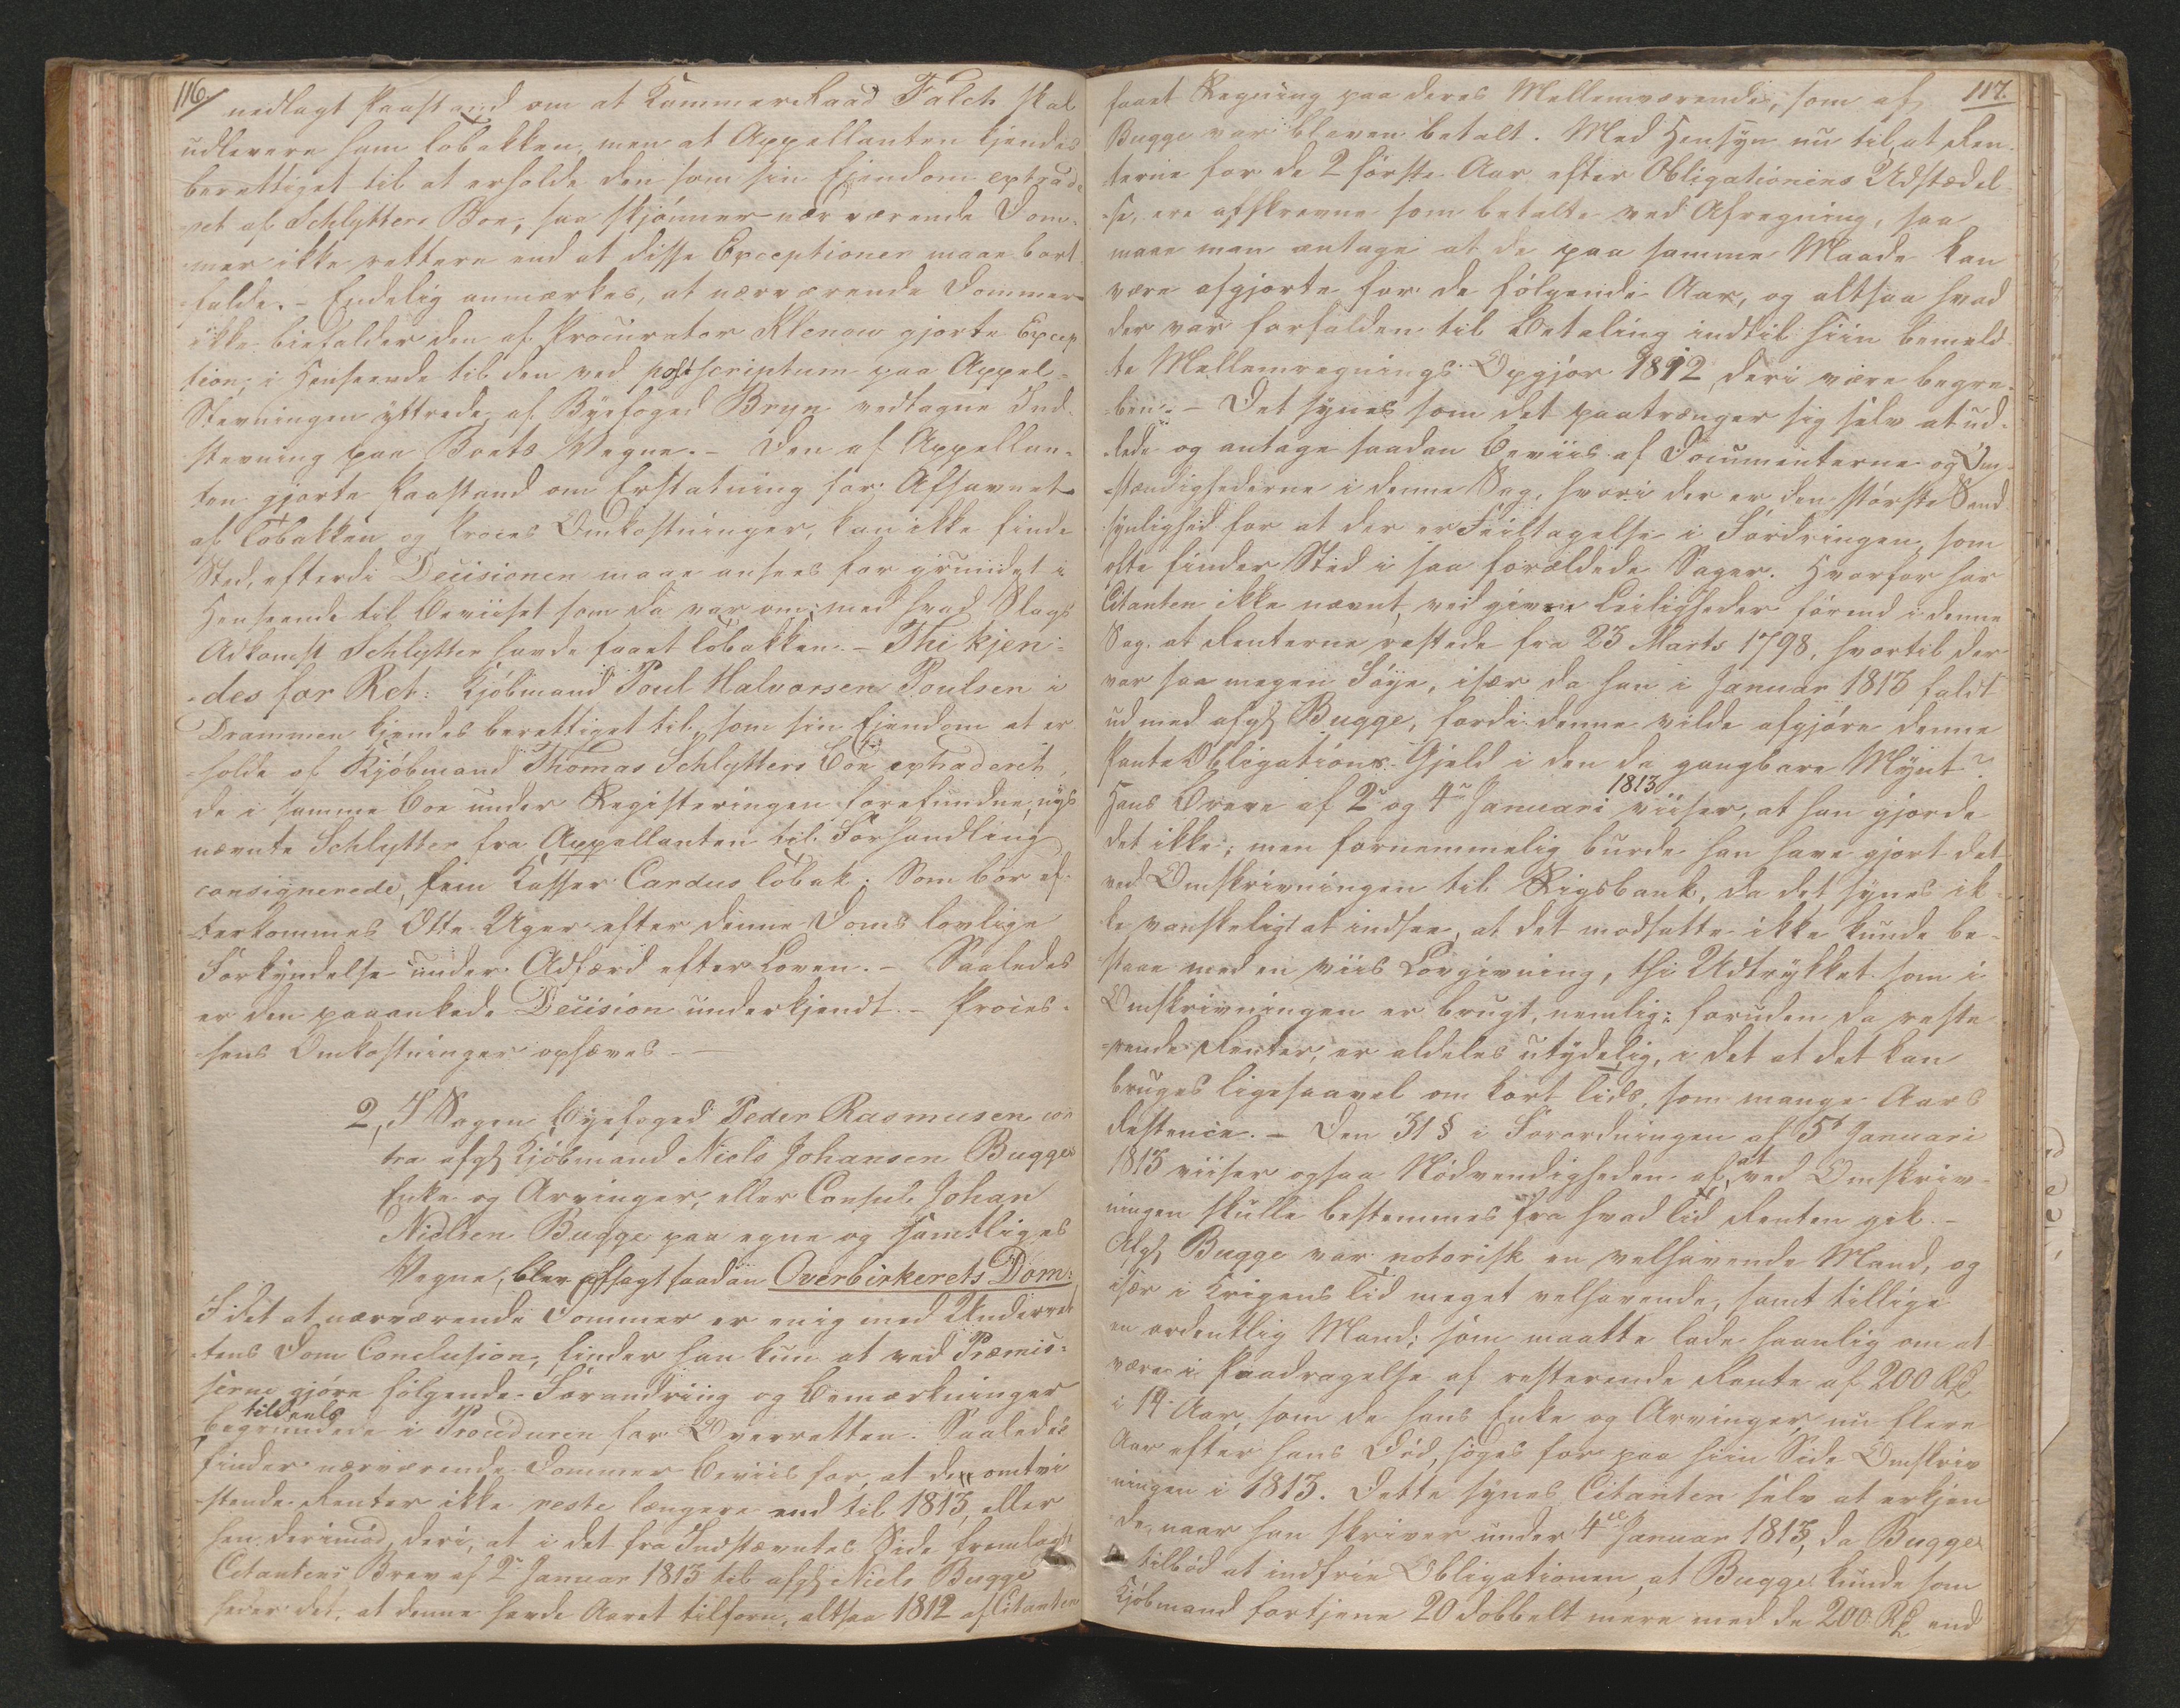 116/
nedlagt Paastand om at KammerRaad Falch skal
udlevere ham Tobakken, men at Appellanten kjendes
berettiget til at erholde den som sin Eiendom extrade-
ret af Schlytters Boe, saa skjønner nærværende Dom-
mer ikke rettere end at disse Exceptioner maae bort-
falde. – Endelig anmærkes, at nærværende Dommer
ikke biefalder den af Procurator Klenow gjorte Excep
tion, i Henseende til den ved postscriptum paa Appel-
Stevningen yttrede, af Byefoged Bryn vedtagne Ind-
stevning paa Boets Vegne. – Den af Appellan-
ten gjorte Paastand om Erstatning for Afsavnet
af Tobakken og Proces Omkostninger, kan ikke finde
Sted, efterdi Decisionen maae ansees for grundet i
Henseende til Beviiset som da var om, med hvad Slags
Adkomst Schlytter havde faaet Tobakken. – Thi kjen-
des for Ret: Kjøbmand Poul Halvorsen Poulsen i
Drammen kjendes berettiget til, som sin Eiendom at er-
holde af Kjøbmand Thomas Schlytters Boe extraderet,
de i samme Boe under Registeringen forefundne, nys
nævnte Schlytter fra Appellanten til Forhandling
consignerede, fem Kasser Cardus Tobak. Som bør ef-
terkommes Otte Uger efter denne Doms lovlige
Forkyndelse under Adfærd efter Loven. – Saaledes
er den paaankede Decision underkjendt. – Proces-
sens Omkostninger ophæves. –
2, I Sagen Byefoged Peder Rasmusen con
tra afg Kjøbmand Niels Johansen Bugges
Enke og Arvinger, eller Consul Johan
Nielsen Bugge paa egne og samtliges
Vegne, blev afsagt saadan Overbirkerets Dom:
I det at nærværende Dommer er enig med Underret
tens Dom Conclusion, finder han kun at ved Præmis-
serne gjøre følgende Forandring og Bemærkninger
tildeels
begrundede i Proceduren for Overretten. Saaledes
finder nærværende Dommer Beviis for, at de omtvi
stende Renter ikke reste længere end til 1813, eller
hen derimod, deri, at i det fra Indstævntes Side fremlagte
Citantens Brev af 2 Januar 1813 til afg Niels Bugge
heder det, at denne havde Aaret tilforn, altsaa 1812 af Citanten
117.
faaet Regning paa deres Mellemværende, som af
Bugge var bleven betalt. Med Hensyn nu til, at Ren-
terne for de 2 første Aar efter Obligationens Udstædel-
se, ere afskrevne som betalte ved Afregning, saa
maae man antage at de paa samme Maade kan
være afgjorte for de følgende Aar, og altsaa hvad
der var forfalden til Betaling indtil hiin bemeld
te Mellemregnings Opgjør 1812, deri være begre-
ben. – Det synes som det paatrænger sig selv at ud-
lede og antage saadan Beviis af Documenterne og Om-
stændighederne i denne Sag, hvori der er den største Sand
synlighed for at der er Feiltagelse i Fordringen, som
ofte finder Sted i saa forældede Sager. Hvorfor har
Citanten ikke nævnt, ved givne Leiligheder førend i denne
Sag, at Renterne restede fra 23 Marts 1798, hvortil der
var saa megen Føye, især da han i Januar 1813 faldt
ud med afg Bugge, fordi denne vilde afgjøre denne
Pante Obligations Gjeld i den da gangbare Mynt?
1813
Hans Breve af 2 og 4 Januari viiser, at han gjorde
det ikke; men fornemmelig burde han have gjort det
ved Omskrivningen til Rigsbank, da det synes ik-
ke vanskeligt at indsee, at det modsatte ikke kunde be-
staae med en viis Lovgivning, thi Udtrykket som i
Omskrivningen er brugt, nemlig: foruden da reste
rende Renter, er aldeles utydelig, i det at det kan
bruges ligesaavel om kort Tids, som mange Aars
Restence. – Den 31 § i Forordningen af 5 Januari
1813 viiser ogsaa Nødvendigheden af, at ved Omskriv-
ningen skulle bestemmes fra hvad Tid Renten gik. –
Afg Bugge var notorisk en velhavende Mand, og
især i Krigens Tid meget velhavende, samt tillige
en ordentlig Mand; som maatte lade haanlig om at
være i Paadragelse af resterende Rente af 200 Rd
i 14 Aar, som de hans Enke og Arvinger, nu flere
Aar efter hans Død, søges for paa hiin Side Omskriv
ningen i 1813. Dette synes Citanten selv at erkjen
de, naar han skriver under 4 Januar 1813, da Bugge
tilbød at indfrie Obligationen, at Bugge kunde som
Kjøbmand fortjene 20 dobbelt mere med de 200 Rd end